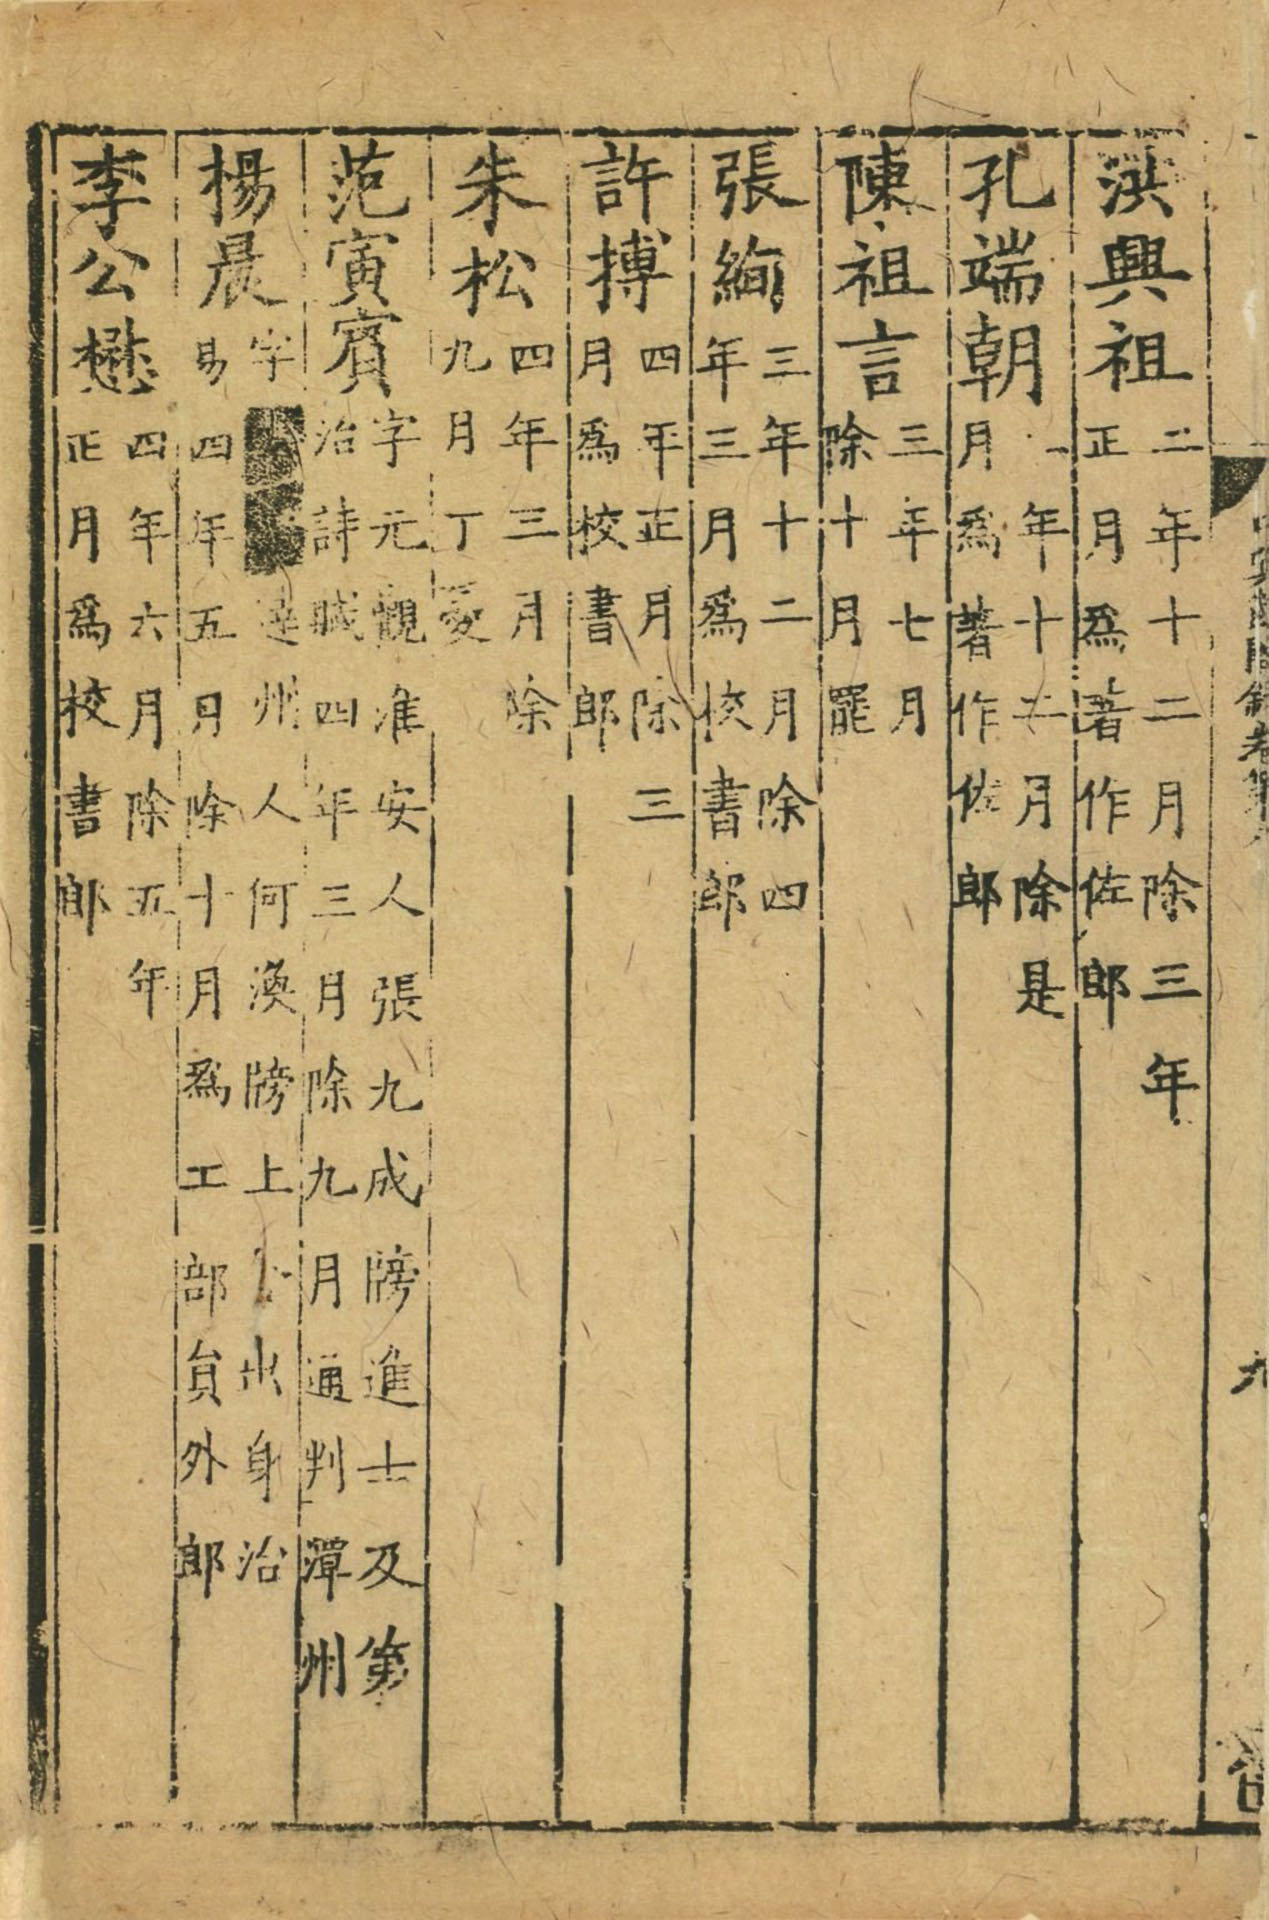 洪興祖二年十二月除三年
正月爲著作佐郎
孔端朝二年十二月除是
月爲著作佐郎
陳祖言三年七月
除十月罷
張絢三年十二月除四
年三月爲校書郎
許摶四年正月除三
月爲校書郎
朱松四年三月除
九月丁憂
范寅賓字元觀淮安人張九成牓進士及第
治詩賦四年三月除九月通判潭州
楊晨字達州人何渙牓上出身治
易四年五月除十月爲工部員外郎
李公懋四年六月除五年
正月爲校書郎
九